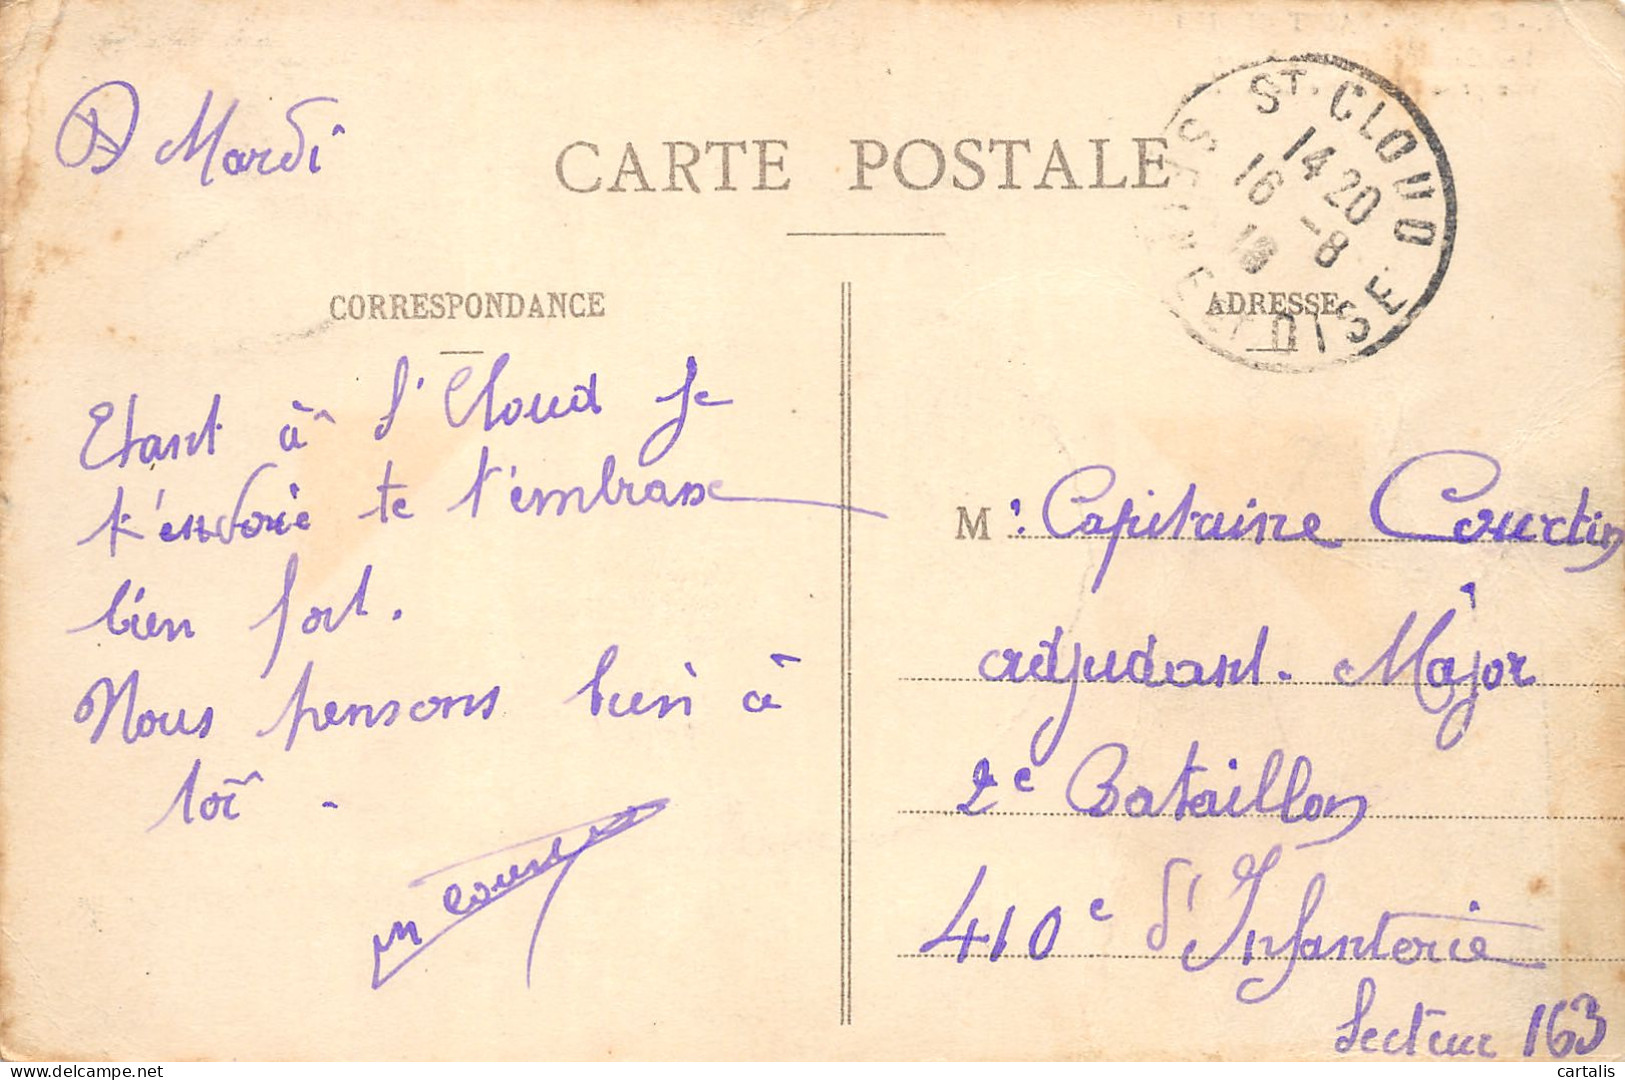 Mardi
CARTE POSTALE
ST. CLOUD
14 20
16 -8
SEINE ET OISE
CORRESPONDANCE
ADRESSE
Etant à St Cloud je
t'envoie te t'embrasse
bien fort.
Nous pensons bien à
toi -
M Capitaine Courtin
adjudant-Major
2e Bataillon
410e d'Infanterie
Secteur 163
cartalis